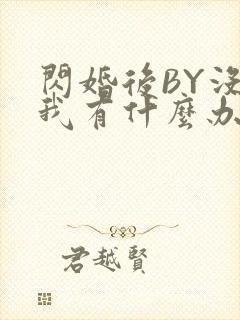 閃婚後BY沒
我有什麼办
君越賢